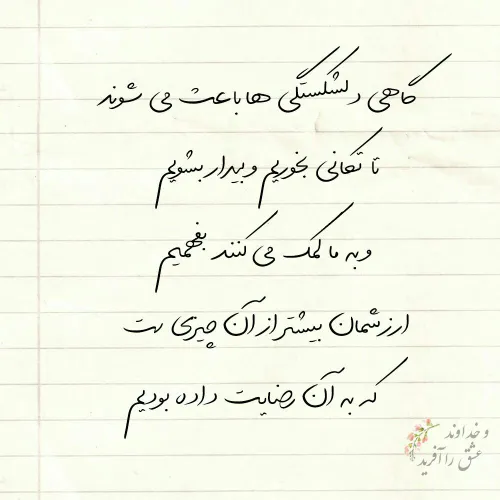 گاهی دلشکستگی ها باعث می شوند
تا تکانی بخوریم و بیدار بشویم
و به ما کمک می کنند بفهمیم
ارزشمان بیشتر از آن چیزی ست
که به آن رضایت داده بودیم
و خداوند
عشق را آفرید